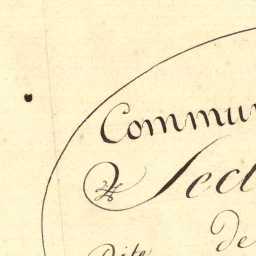 Commu
Sect
de
Dite